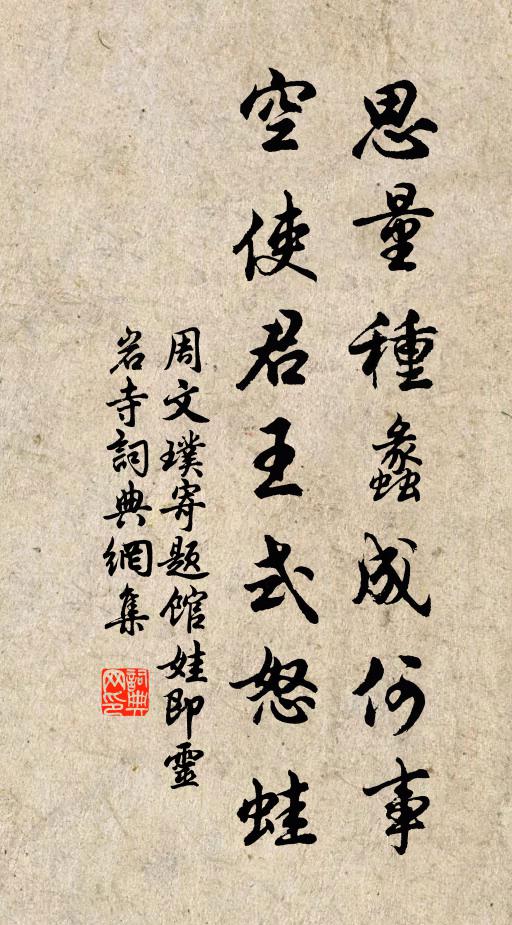 思量種蠡成何事
空使君王式怒蛙
周文璞寄題館娃即靈
岩寺詞典網集
詞典网印